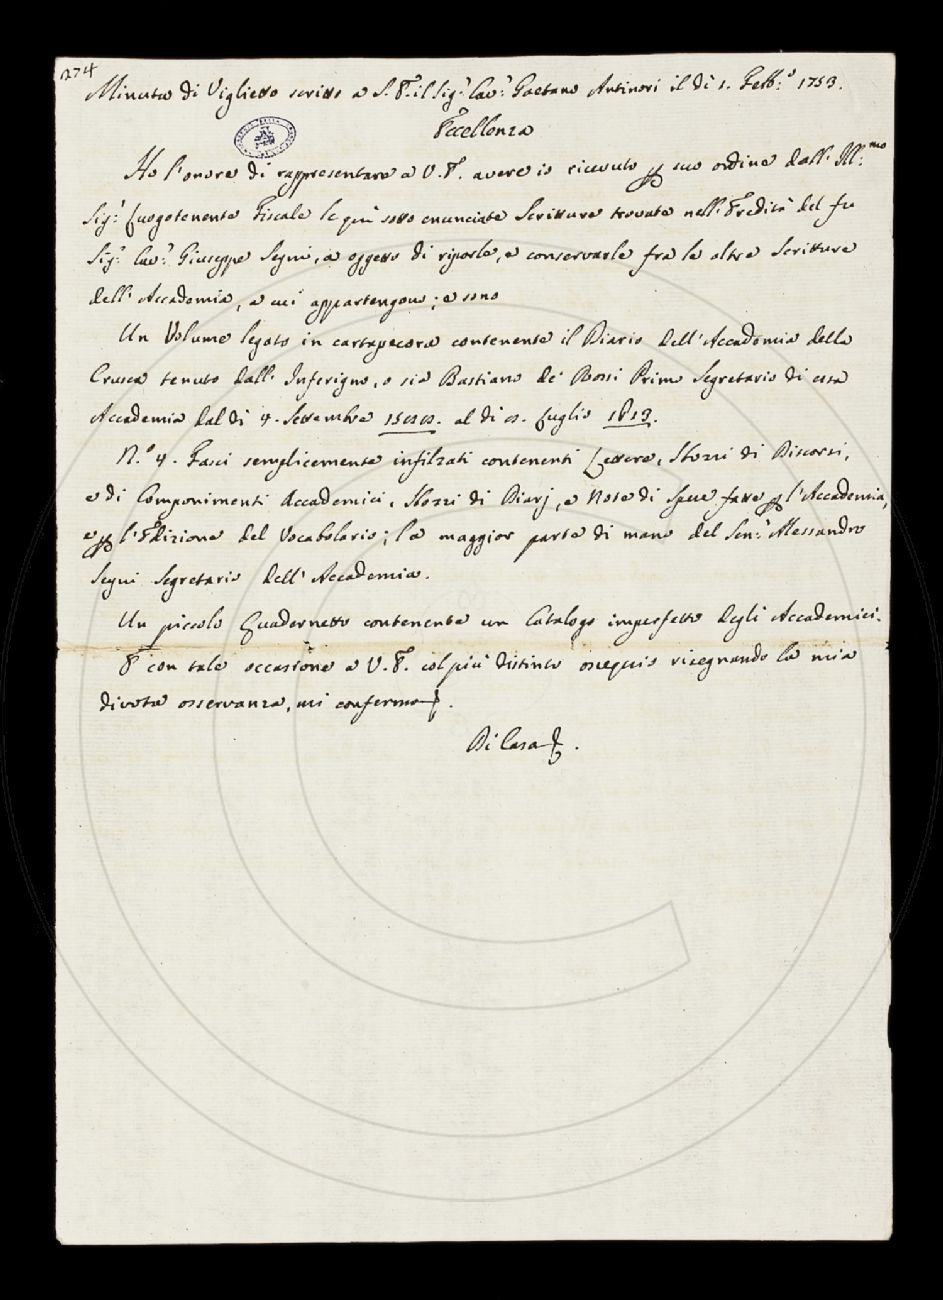 274
Minuta di Viglietto scritto a S. E. il Sig.r Cav.r Gaetano Antinori il dì 1. Febb.o 1753.
Eccellenza
Ho l'onore di rappresentare a V. E. avere io ricevuto p suo ordine dall' Ill.mo
Sig.r Luogotenente Fiscale le qui sotto enunciate Scritture trovate nell' Eredità del fu
Sig.r Cav.r Giuseppe Segni, a oggetto di riporle, e conservarle fra le altre Scritture
dell' Accademia, a cui appartengono; e sono
Un Volume legato in cartapecora contenente il Diario dell' Accademia della
Crusca tenuto dall' Inferigno, o sia Bastiano de' Rossi Primo Segretario di essa
Accademia dal dì 4. Settembre al dì Luglio 1613.
N.o 4. Fasci semplicemente infilzati contenenti Lettere, Sbozzi di Discorsi,
e di Componimenti Accademici, Sbozzi di Diarj, e Note di Spese fatte p l'Accademia,
e p l'Edizione del Vocabolario; la maggior parte di mano del Sen.r Alessandro
Segni Segretario dell' Accademia.
Un piccolo Quadernetto contenente un Catalogo imperfetto degli Accademici.
E con tale occasione a V. E. col più distinto ossequio risegnando la mia
divota osservanza, mi confermo
Di Casa